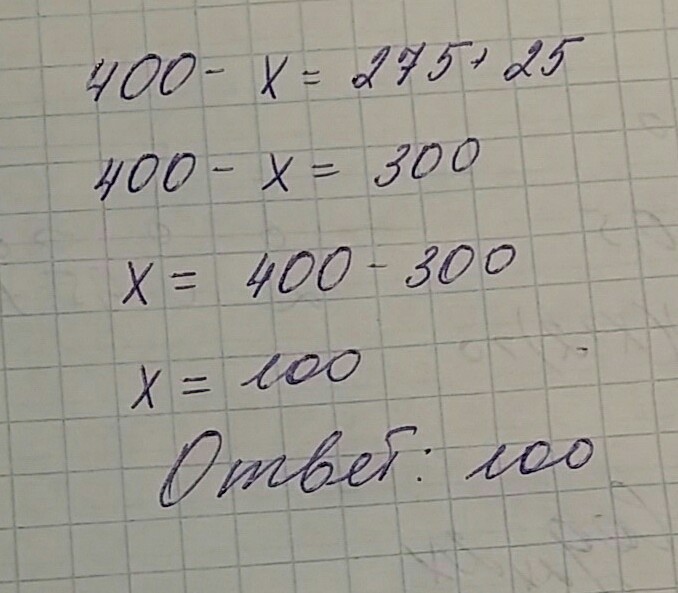 400 - x = 275 + 25
400 - x = 300
x = 400 - 300
x = 100
Ответ: 100